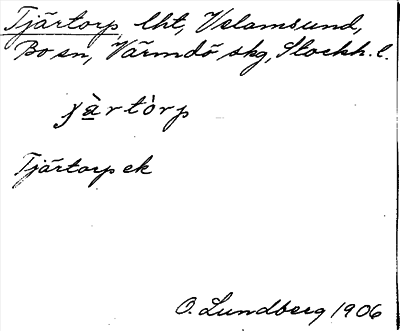 Tjärtorp, lht, Velamsund,
Bo sn, Värmdö skg, Stockh. l.
jà̱rtòrp
Tjärtorp ek
O. Lundberg 1906